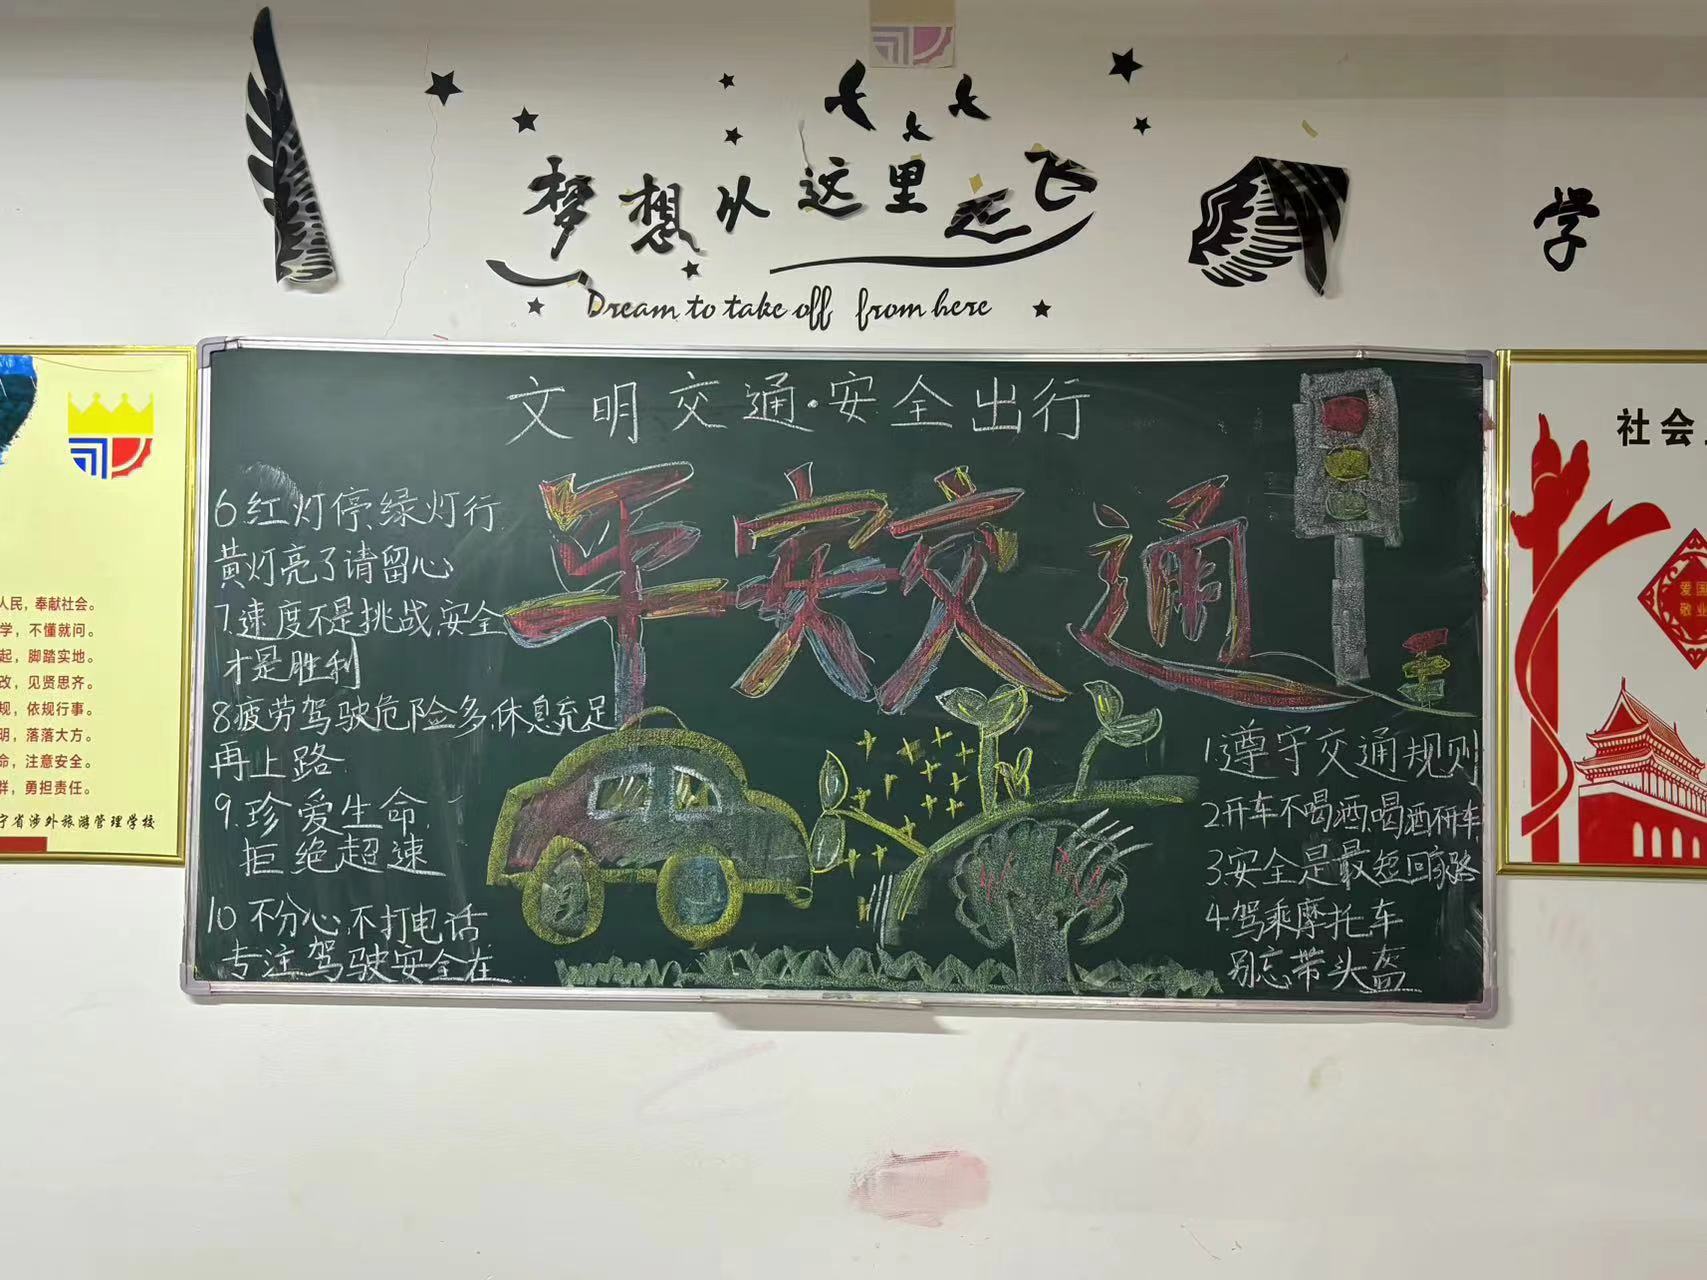 梦想从这里起飞
Dream to take off from here
学
文明交通·安全出行
平安交通
6.红灯停,绿灯行
黄灯亮了请留心
7.速度不是挑战,安全
才是胜利
8.疲劳驾驶危险多,休息充足
再上路
9.珍爱生命,
拒绝超速
10.不分心,不打电话
专注驾驶安全在
1.遵守交通规则
2.开车不喝酒,喝酒不开车
3.安全是最短回家路
4.驾乘摩托车
别忘带头盔
人民,奉献社会。
学,不懂就问。
起,脚踏实地。
改,见贤思齐。
规,依规行事。
明,落落大方。
命,注意安全。
群,勇担责任。
宁省涉外旅游管理学校
社会
爱国
敬业